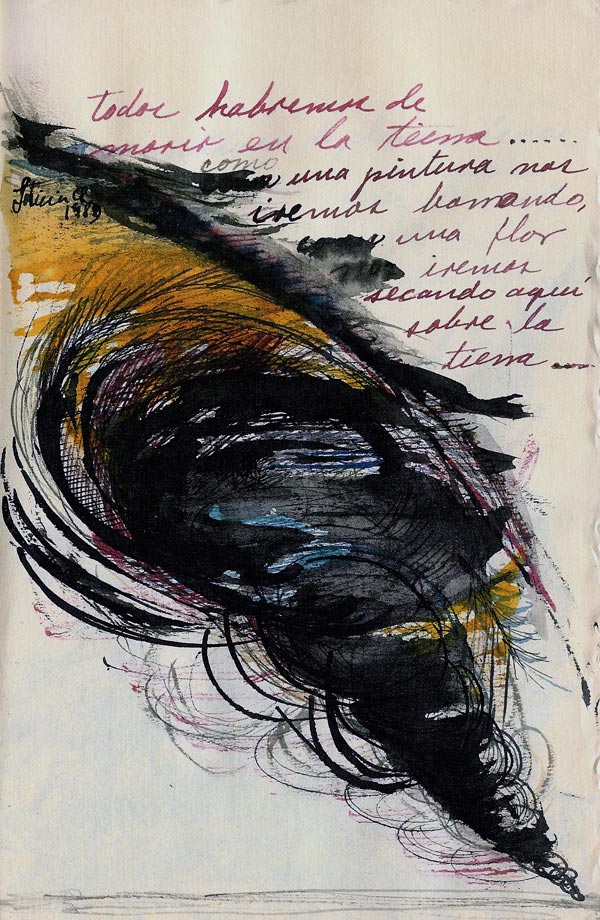 todos habremos de
morir en la tierra ......
como una pintura nos
iremos borrando,
y una flor
nos iremos
secando aquí
sobre la
tierra ....
1989